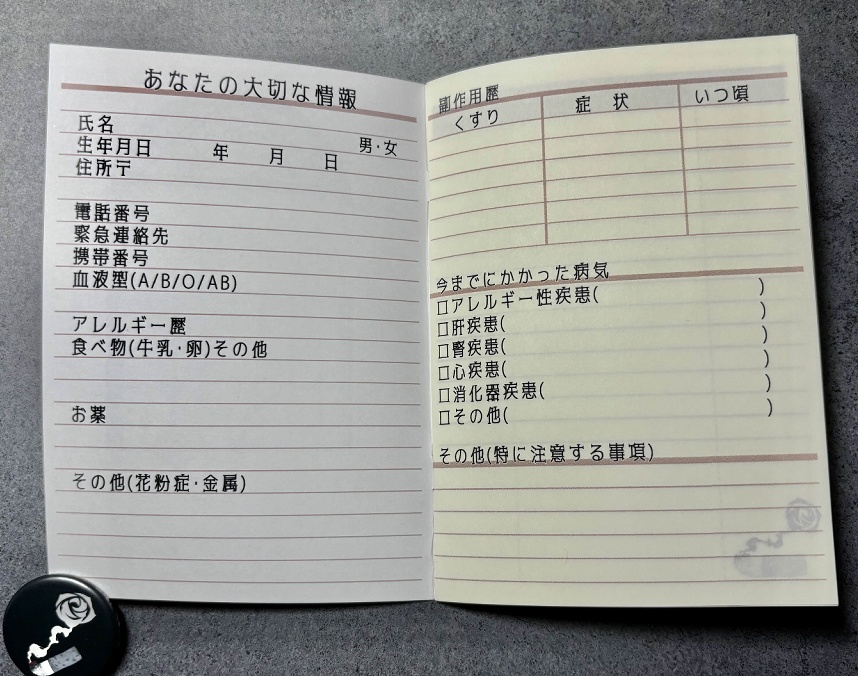 あなたの大切な情報
氏名
生年月日 年 月 日 男・女
住所〒
電話番号
緊急連絡先
携帯番号
血液型(A/B/O/AB)
アレルギー歴
食べ物(牛乳・卵)その他
お薬
その他(花粉症・金属)
副作用歴
くすり 症 状 いつ頃
今までにかかった病気
□アレルギー性疾患( )
□肝疾患( )
□腎疾患( )
□心疾患( )
□消化器疾患( )
□その他( )
その他(特に注意する事項)